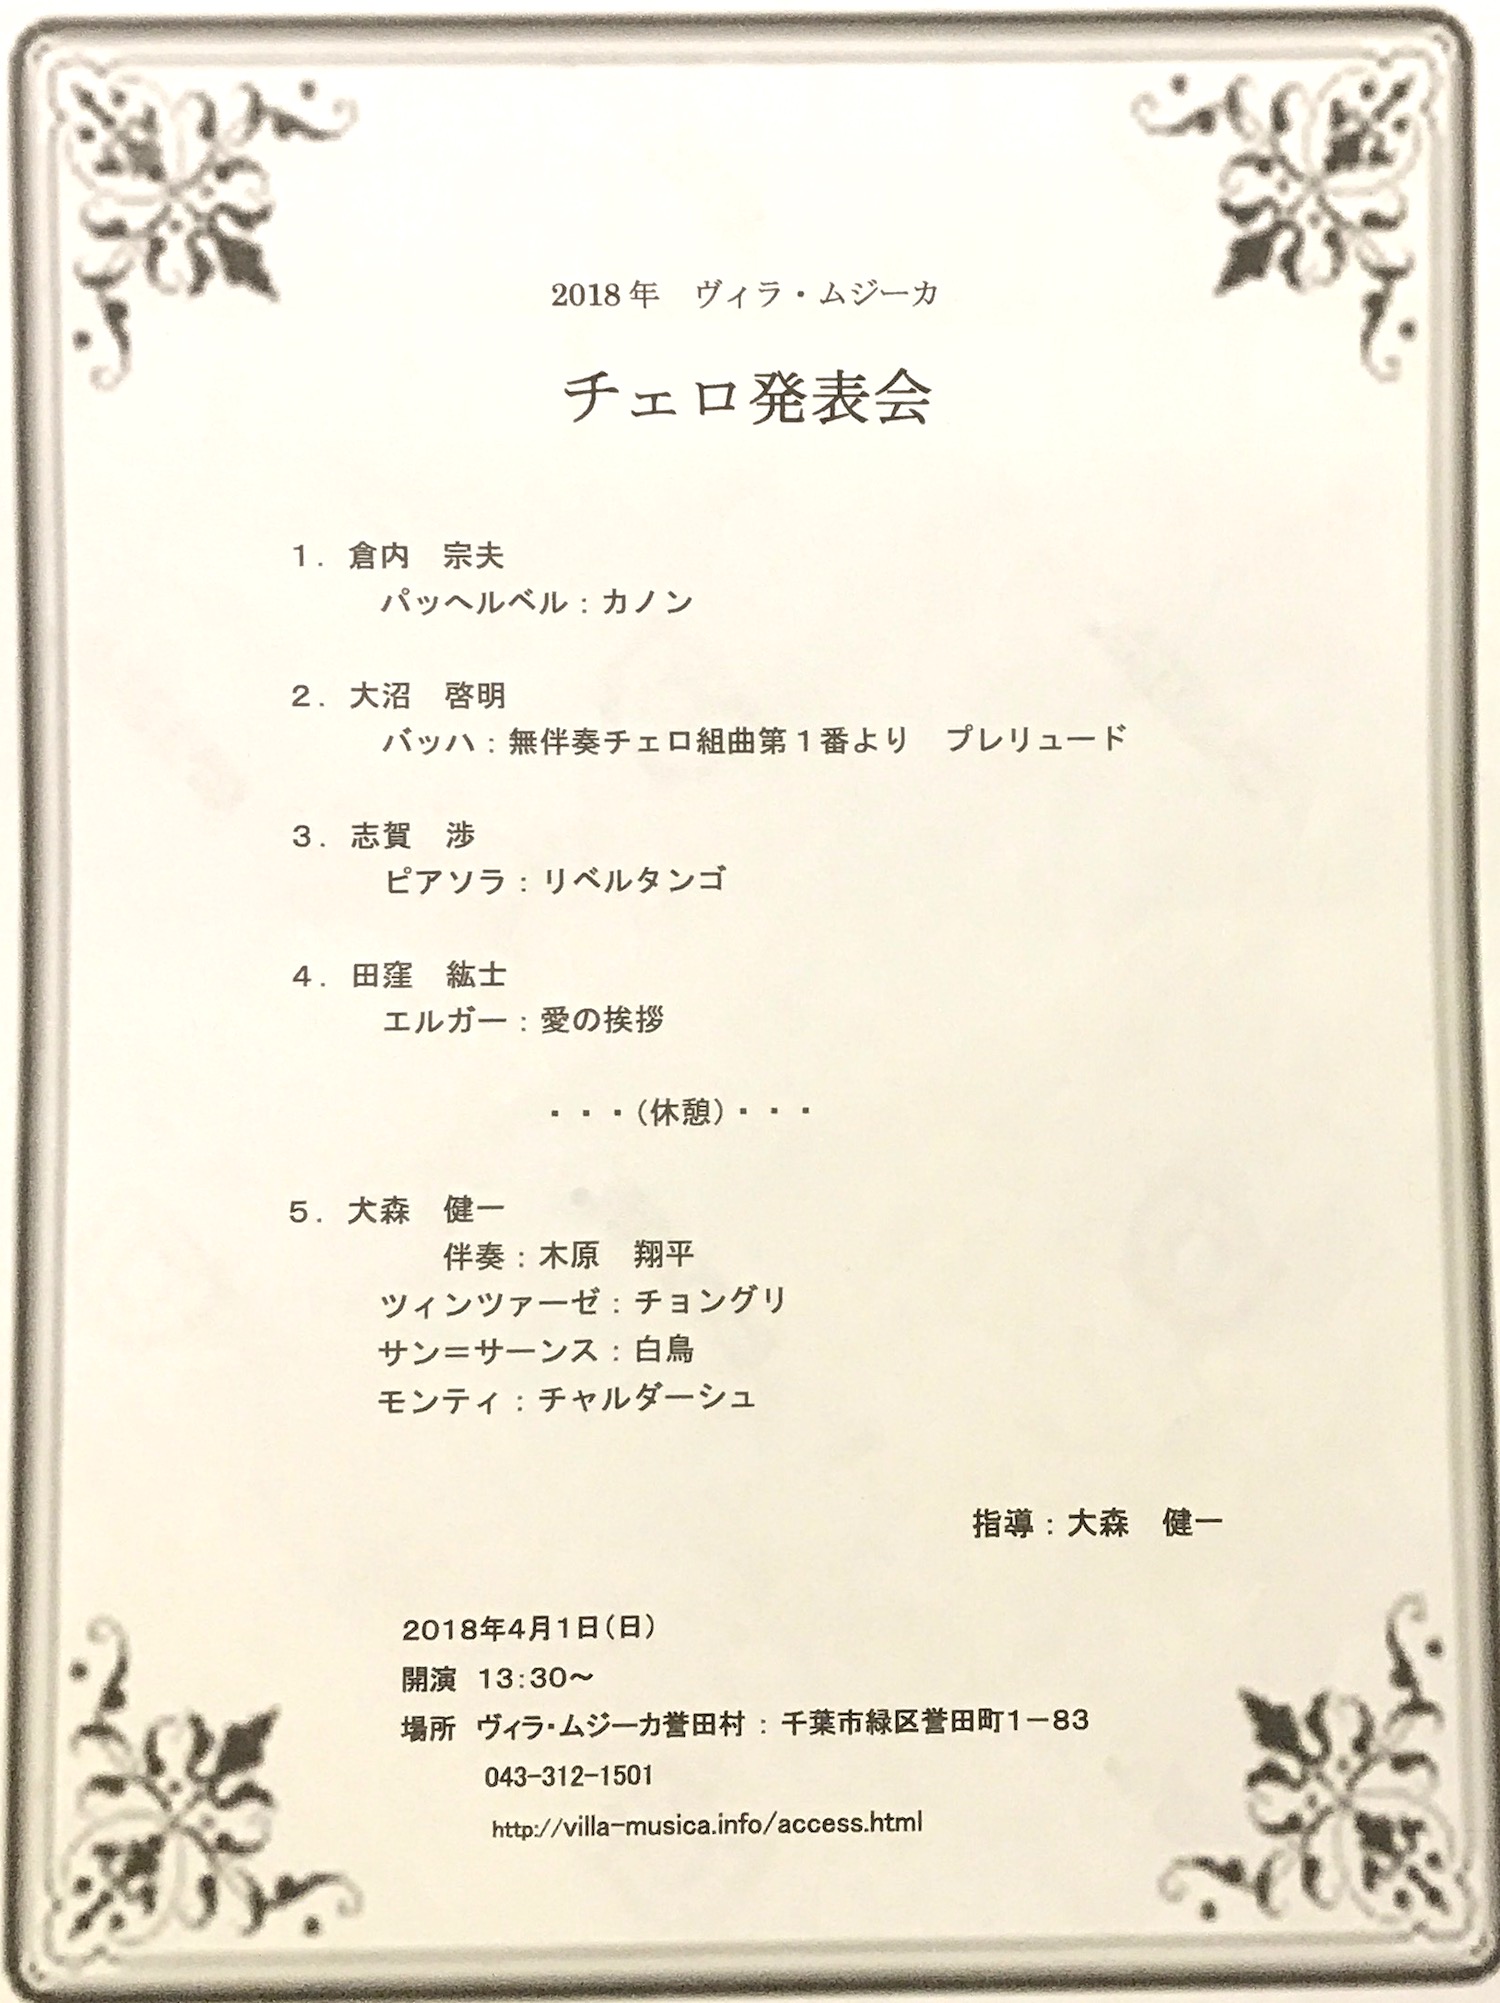 2018年　ヴィラ・ムジーカ
チェロ発表会
１．倉内　宗夫
パッヘルベル：カノン
２．大沼　啓明
バッハ：無伴奏チェロ組曲第１番より　プレリュード
３．志賀　渉
ピアソラ：リベルタンゴ
４．田窪　紘士
エルガー：愛の挨拶
・・・（休憩）・・・
５．大森　健一
伴奏：木原　翔平
ツィンツァーゼ：チョングリ
サン＝サーンス：白鳥
モンティ：チャルダーシュ
指導：大森　健一
2018年4月1日（日）
開演　13：30～
場所　ヴィラ・ムジーカ誉田村：千葉市緑区誉田町1－83
043-312-1501
http://villa-musica.info/access.html